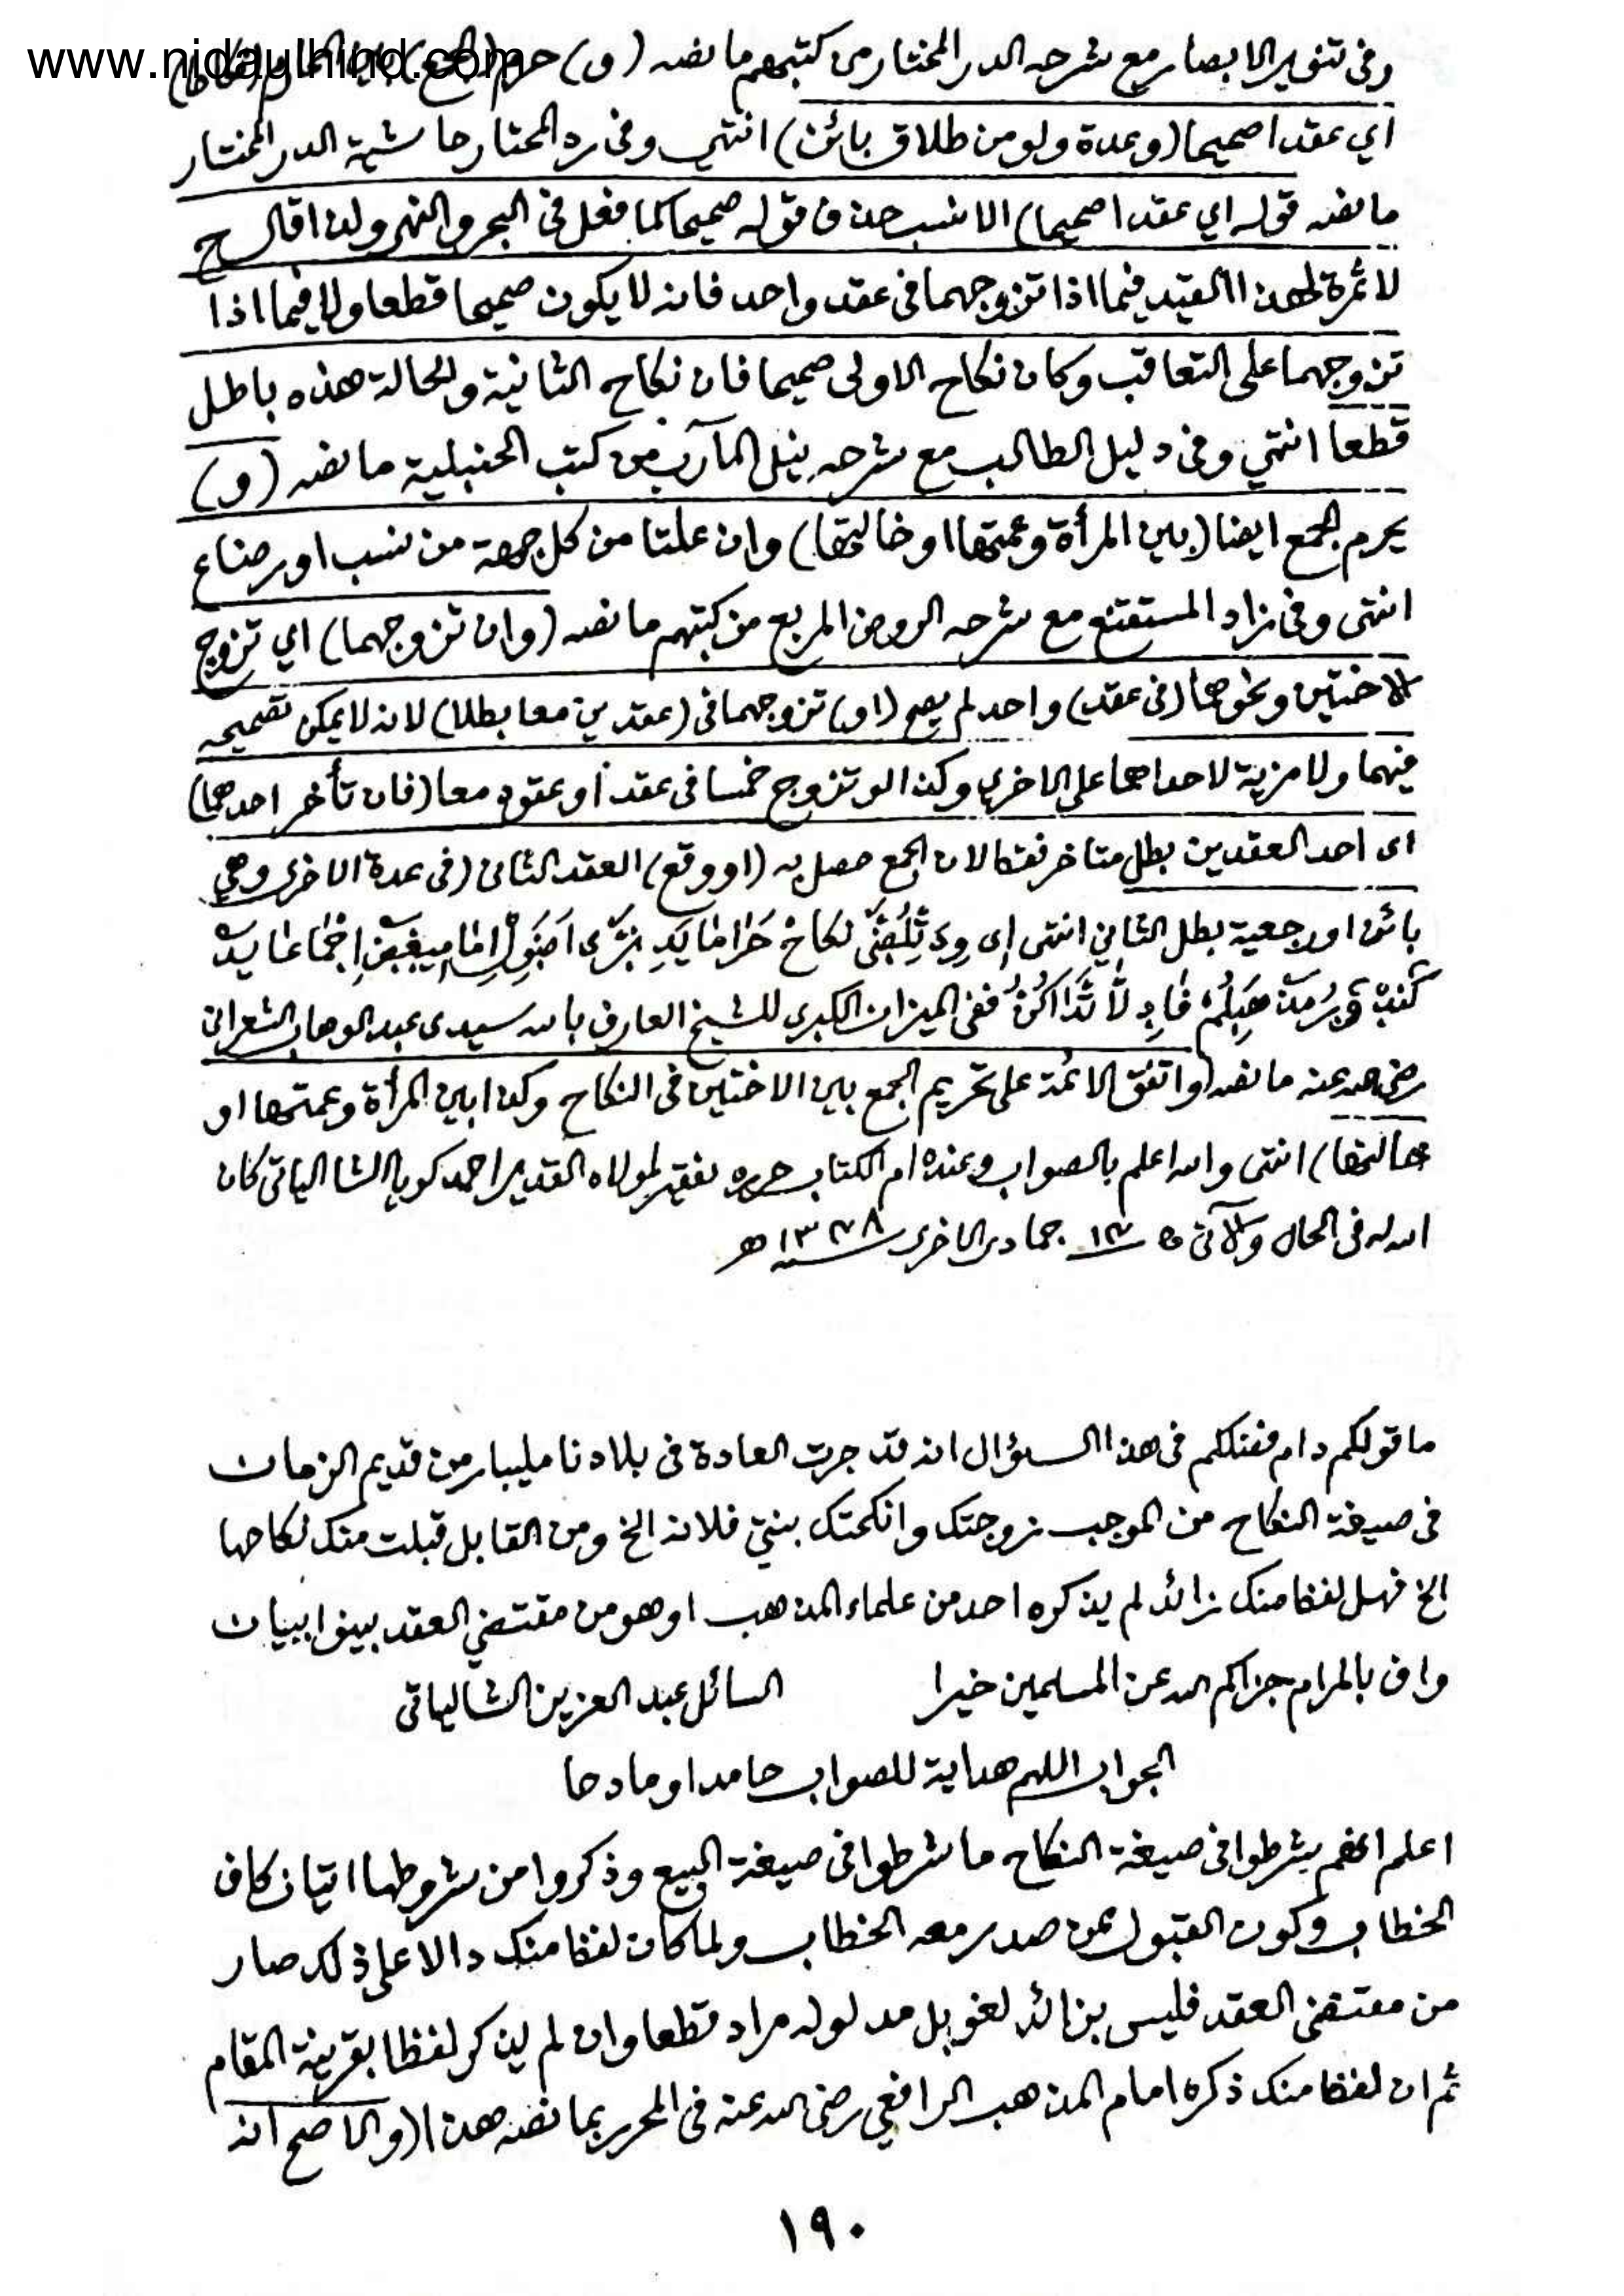 www.nidaulhind.com
وفى تنوير الابصار مع شرحه الدر المختار من كتبهم ما نصه (و) حرم (الجمع)
اي عقدا صحيحا (وعدة ولو من طلاق بائن) انتهى وفى رد المحتار حاشية الدر المختار
ما نصه قوله اي عقدا صحيحا) الانسب حذف قوله صحيحا كما فعل فى البحر والنهر ولذا قال ح
لا ثمرة لهذا القيد فيما اذا تزوجهما فى عقد واحد فانه لا يكون صحيحا قطعا ولا فيما اذا
تزوجهما على التعاقب وكان نكاح الاولى صحيحا فان نكاح الثانية والحالة هذه باطل
قطعا انتهى وفى دليل الطالب مع شرحه نيل المآرب من كتب الحنبلية ما نصه (و)
يحرم الجمع ايضا (بين المرأة وعمتها او خالتها) وان علتا من كل جهة من نسب او رضاع
انتهى وفى زاد المستقنع مع شرحه الروض المربع من كتبهم ما نصه (وان تزوجهما) اي تزوج
الاختين ونحوهما (فى عقد) واحد لم يصح (او) تزوجهما فى (عقدين معا بطلا) لانه لا يمكن تصحيحه
فيهما ولا مزية لاحداهما على الاخرى وكذا لو تزوج خمسا فى عقد او عقود معا (فان تأخر احدهما)
اى احد العقدين بطل متاخر فقط لان الجمع حصل به (او وقع) العقد الثانى (فى عدة الاخرى وهي
بائن او رجعية بطل الثاني انتهى
ففى الميزان الكبرى للشيخ العارف بالله سيدى عبد الوهاب الشعرانى
رضى الله عنه ما نصه (واتفق الائمة على تحريم الجمع بين الاختين فى النكاح وكذا بين المرأة وعمتها او
خالتها) انتهى والله اعلم بالصواب وعنده ام الكتاب حرره فقير لمولاه القدير احمد كويا الشالياتى كان
الله له فى الحال والآتى ١٤ جمادى الاخرى سنة ١٣٤٨ هـ
ما قولكم دام فضلكم فى هذا السؤال انه قد جرت العادة فى بلادنا مليبار من قديم الزمان
فى صيغة النكاح من الموجب زوجتك وانكحتك بنتي فلانة الخ ومن القابل قبلت منك نكاحها
الخ فهل لفظ منك زائد لم يذكره احد من علماء المذهب او هو من مقتضي العقد بينوا ببيان
واف بالمرام جزاكم الله عن المسلمين خيرا السائل عبد العزيز الشالياتى
الجواب اللهم هداية للصواب حامدا ومادحا
اعلم انهم شرطوا فى صيغة النكاح ما شرطوا فى صيغة البيع وذكروا من شروطها اتيان كاف
الخطاب وكون القبول ممن صدر معه الخطاب ولما كان لفظ منك دالا على ذلك صار
من مقتضى العقد فليس بزائد لغو بل مدلوله مراد قطعا وان لم يذكر لفظا بقرينة المقام
ثم ان لفظ منك ذكره امام المذهب الرافعي رضى الله عنه فى المحرر بما نصه هذا (والاصح انه
١٩٠